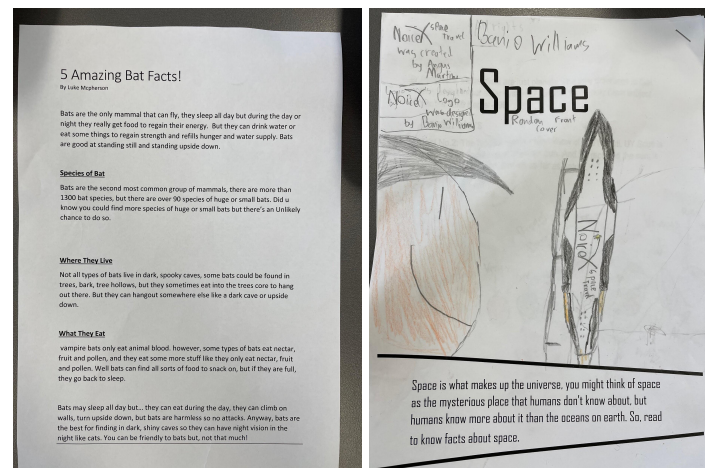 5 Amazing Bat Facts!
By Luke Mcpherson
Bats are the only mammal that can fly, they sleep all day but during the day or
night they really get food to regain their energy.  But they can drink water or
eat some things to regain strength and refills hunger and water supply. Bats
are good at standing still and standing upside down.
Species of Bat
Bats are the second most common group of mammals, there are more than
1300 bat species, but there are over 90 species of huge or small bats. Did u
know you could find more species of huge or small bats but there's an Unlikely
chance to do so.
Where They Live
Not all types of bats live in dark, spooky caves, some bats could be found in
trees, bark, tree hollows, but they sometimes eat into the trees core to hang
out there. But they can hangout somewhere else like a dark cave or upside
down.
What They Eat
vampire bats only eat animal blood. however, some types of bats eat nectar,
fruit and pollen, and they eat some more stuff like they only eat nectar, fruit
and pollen. Well bats can find all sorts of food to snack on, but if they are full,
they go back to sleep.
Bats may sleep all day but... they can eat during the day, they can climb on
walls, turn upside down, but bats are harmless so no attacks. Anyway, bats are
the best for finding in dark, shiny caves so they can have night vision in the
night like cats. You can be friendly to bats but, not that much!
NoreX space
Travel
was created
by Angus
Martin
NoreX Logo
was design
by Banjo William
Banjo Williams
Space
Random Front
Cover
NoreX
Space
Travel
Space is what makes up the universe, you might think of space
as the mysterious place that humans don't know about, but
humans know more about it than the oceans on earth. So, read
to know facts about space.